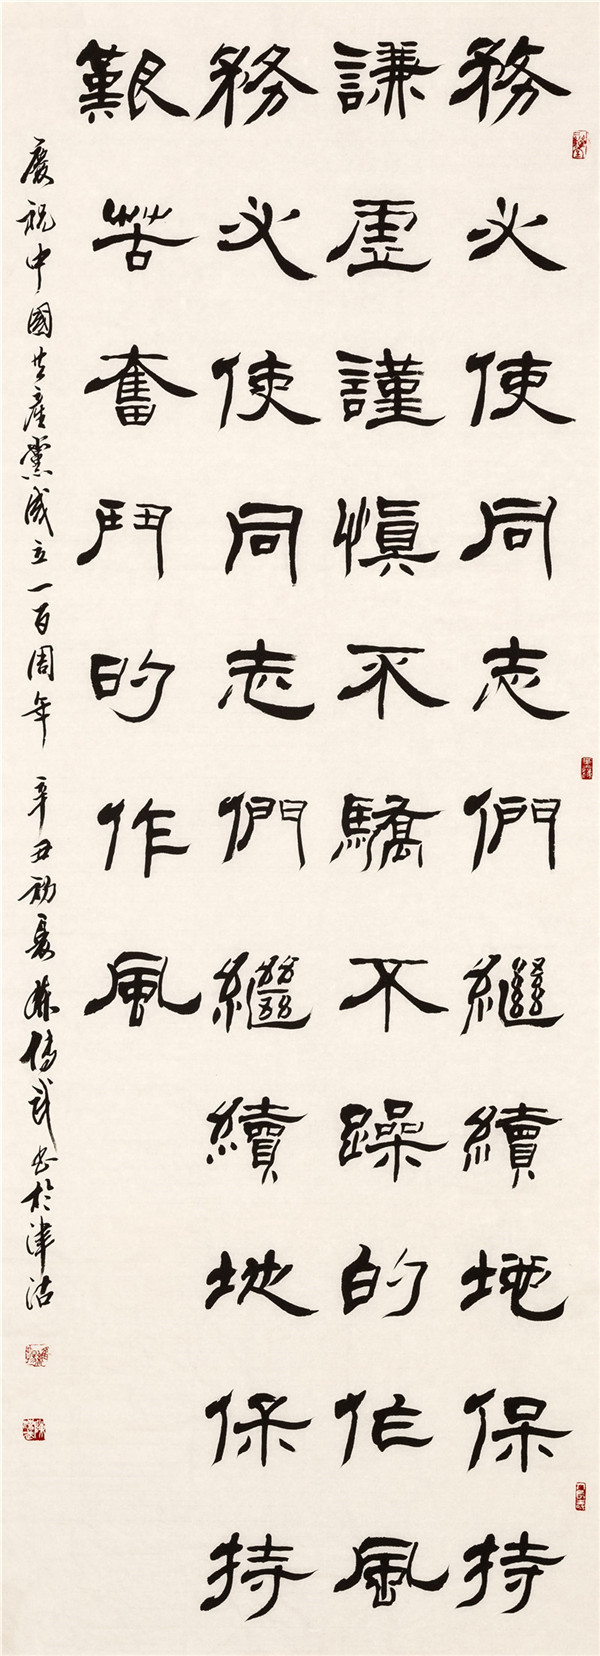 務必使同志們繼續地保持
謙虛謹慎不驕不躁的作風
務必使同志們繼續地保持
艱苦奮鬥的作風
慶祝中國共產黨成立一百周年 辛丑初夏 傳武書於津沽